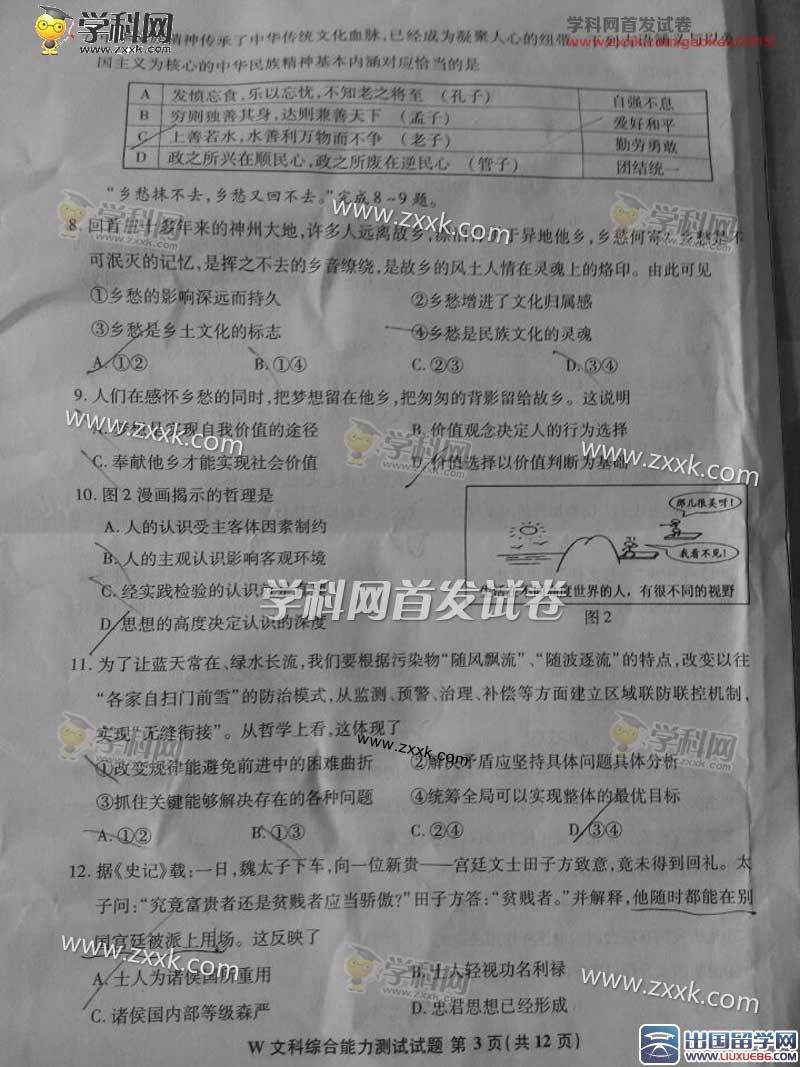 学科网首发试卷
精神传承了中华传统文化血脉,已经成为凝聚人心的纽带
国主义为核心的中华民族精神基本内涵对应恰当的是
A 发愤忘食,乐以忘忧,不知老之将至 (孔子) 自强不息
B 穷则独善其身,达则兼善天下 (孟子) 爱好和平
C 上善若水,水善利万物而不争 (老子) 勤劳勇敢
D 政之所兴在顺民心,政之所废在逆民心 (管子) 团结统一
“乡愁抹不去,乡愁又回不去。”完成8~9题。
8. 回首 十多年来的神州大地,许多人远离故乡, 于异地他乡,乡愁何寄?乡愁是不
可泯灭的记忆,是挥之不去的乡音缭绕,是故乡的风土人情在灵魂上的烙印。由此可见
①乡愁的影响深远而持久 ②乡愁增进了文化归属感
③乡愁是乡土文化的标志 ④乡愁是民族文化的灵魂
A. ①② B. ①④ C. ②③ D. ③④
9. 人们在感怀乡愁的同时,把梦想留在他乡,把匆匆的背影留给故乡。这说明
A. 是实现自我价值的途径 B. 价值观念决定人的行为选择
C. 奉献他乡才能实现社会价值 D. 价值选择以价值判断为基础
10. 图2漫画揭示的哲理是
A. 人的认识受主客体因素制约
B. 人的主观认识影响客观环境
C. 经实践检验的认识
D. 思想的高度决定认识的深度
那儿很美呀!
我看不见!
生活在不同高度世界的人,有很不同的视野
图2
11. 为了让蓝天常在、绿水长流,我们要根据污染物“随风飘流”、“随波逐流”的特点,改变以往
“各家自扫门前雪”的防治模式,从监测、预警、治理、补偿等方面建立区域联防联控机制,
实现“无缝衔接”。从哲学上看,这体现了
①改变规律能避免前进中的困难曲折 ②解决矛盾应坚持具体问题具体分析
③抓住关键能够解决存在的各种问题 ④统筹全局可以实现整体的最优目标
A. ①② B. ①③ C. ②④ D. ③④
12. 据《史记》载:一日,魏太子下车,向一位新贵——宫廷文士田子方致意,竟未得到回礼。太
子问:“究竟富贵者还是贫贱者应当骄傲?”田子方答:“贫贱者。”并解释,他随时都能在别
国宫廷被派上用场。这反映了
A. 士人为诸侯国所重用 B. 士人轻视功名利禄
C. 诸侯国内部等级森严 D. 忠君思想已经形成
W 文科综合能力测试试题 第3页(共12页)
学科网
www.zxxk.com
学科网首发试卷
出国留学网
www.liuxue86.com